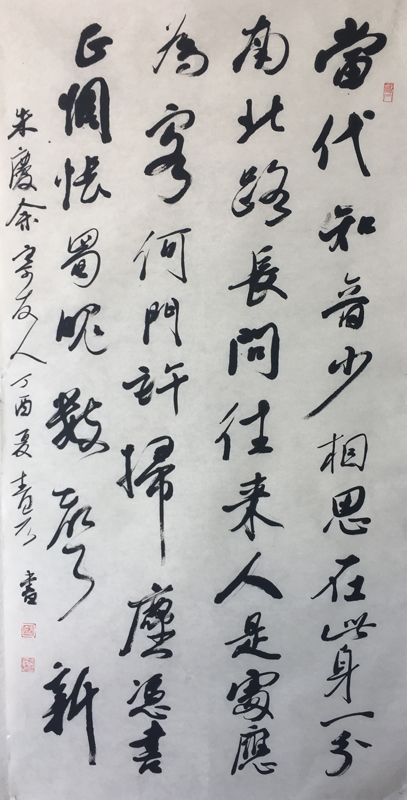 當代知音少相思在此身一分
南北路長問往来人是處應
為客何門許掃塵憑書
正惆悵蜀魄數聲新
朱慶余寄友人丁酉夏書